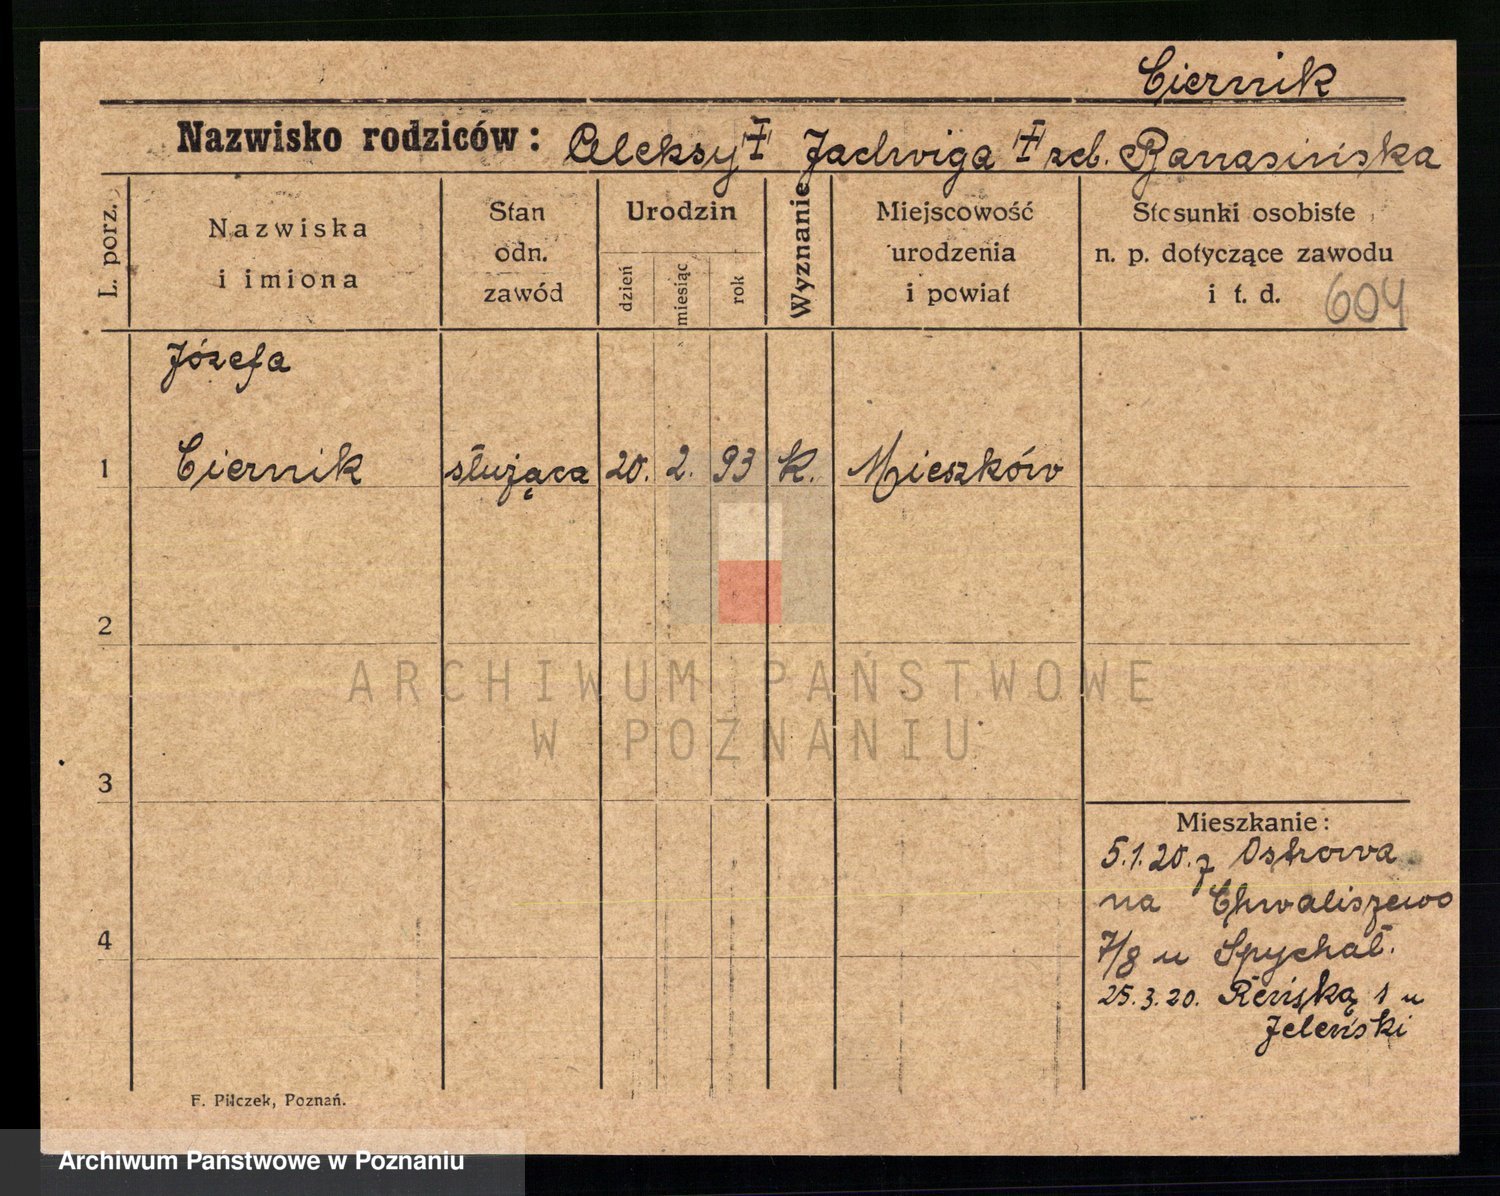 Ciernik
Nazwisko rodziców: Aleksy Jadwiga zd. Banasińska
L. porz.
Nazwiska i imiona
Stan odn. zawód
Urodzin
dzień
miesiąc
rok
Wyznanie
Miejscowość urodzenia i powiat
Stosunki osobiste n. p. dotyczące zawodu i t. d.
604
Józefa
1 Ciernik służąca 20. 2. 93 K. Mieszków
2
3
4
Mieszkanie:
5.1.20. z Ostrowa
na Chwaliszewo
7/8 u Spychał.
25.3.20. Reńską 1 u
Jeleński
F. Pilczek, Poznań.
ARCHIWUM PAŃSTWOWE
W POZNANIU
Archiwum Państwowe w Poznaniu